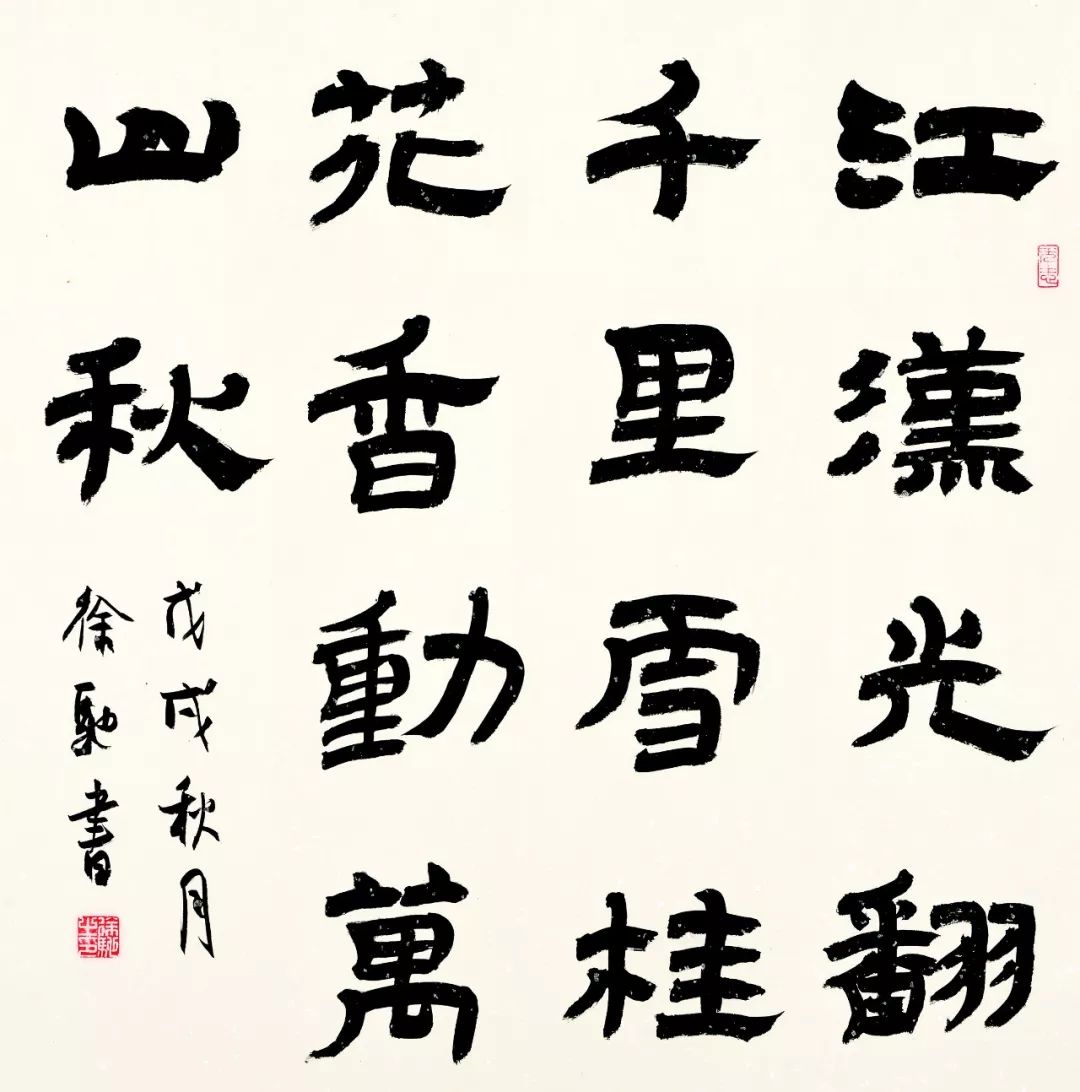 江漢光翻
千里雪桂
花香動萬
山秋
戊戌秋月
徐馳書